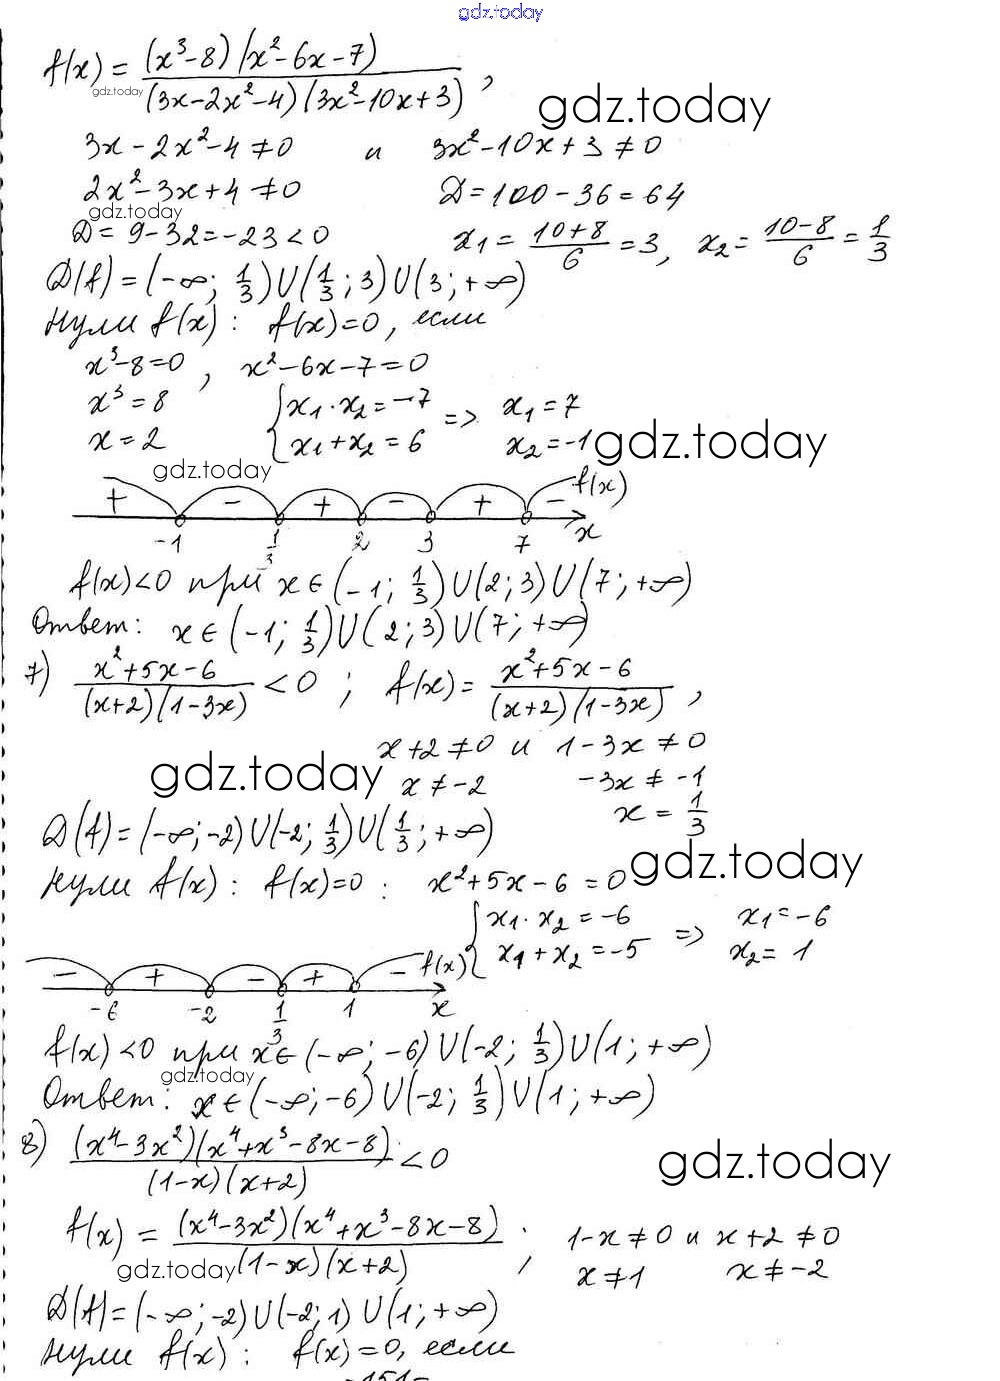 gdz.today
f(x) = (x³-8)(x²-6x-7) / (3x-2x²-4)(3x²-10x+3) ,
gdz.today
gdz.today
3x-2x²-4≠0 и 3x²-10x+3≠0
2x²-3x+4≠0 D=100-36=64
gdz.today
D=9-32=-23<0 x₁ = (10+8)/6 = 3, x₂ = (10-8)/6 = 1/3
D(f)=(-∞; 1/3)U(1/3; 3)U(3; +∞)
нули f(x): f(x)=0, если
x³-8=0, x²-6x-7=0
x³=8 { x₁·x₂=-7 => x₁=7
x=2 x₁+x₂=6 x₂=-1
gdz.today
gdz.today
+ - + - + - f(x)
-1 1/3 2 3 7 x
f(x)<0 при x∈(-1; 1/3)U(2; 3)U(7; +∞)
Ответ: x∈(-1; 1/3)U(2; 3)U(7; +∞)
7) (x²+5x-6) / (x+2)(1-3x) < 0 ; f(x) = (x²+5x-6) / (x+2)(1-3x) ,
x+2≠0 и 1-3x≠0
gdz.today
x≠-2 -3x≠-1
x = 1/3
D(f)=(-∞; -2)U(-2; 1/3)U(1/3; +∞)
gdz.today
нули f(x): f(x)=0: x²+5x-6=0
{ x₁·x₂=-6 => x₁=-6
x₁+x₂=-5 x₂=1
- + - + - f(x)
-6 -2 1/3 1 x
f(x)<0 при x∈(-∞; -6)U(-2; 1/3)U(1; +∞)
gdz.today
Ответ: x∈(-∞; -6)U(-2; 1/3)U(1; +∞)
8) (x⁴-3x²)(x⁴+x³-8x-8) / (1-x)(x+2) < 0
gdz.today
f(x) = (x⁴-3x²)(x⁴+x³-8x-8) / (1-x)(x+2) ; 1-x≠0 и x+2≠0
gdz.today
x≠1 x≠-2
D(f)=(-∞; -2)U(-2; 1)U(1; +∞)
нули f(x): f(x)=0, если